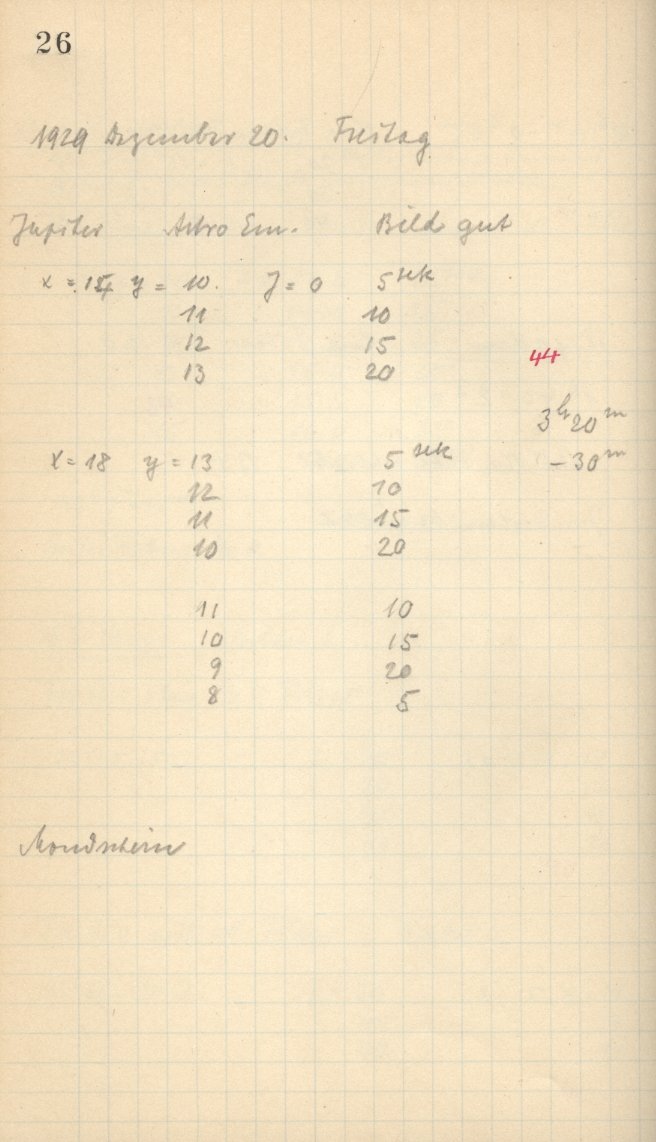 26
1929 Dezember 20. Freitag
Jupiter Astro Em. Bild gut
x = 15 y = 10. J = 0 5 sek
11 10
12 15
13 20
44
3h 20m
x = 18 y = 13 5 sek - 30m
12 10
11 15
10 20
11 10
10 15
9 20
8 5
Mondschein